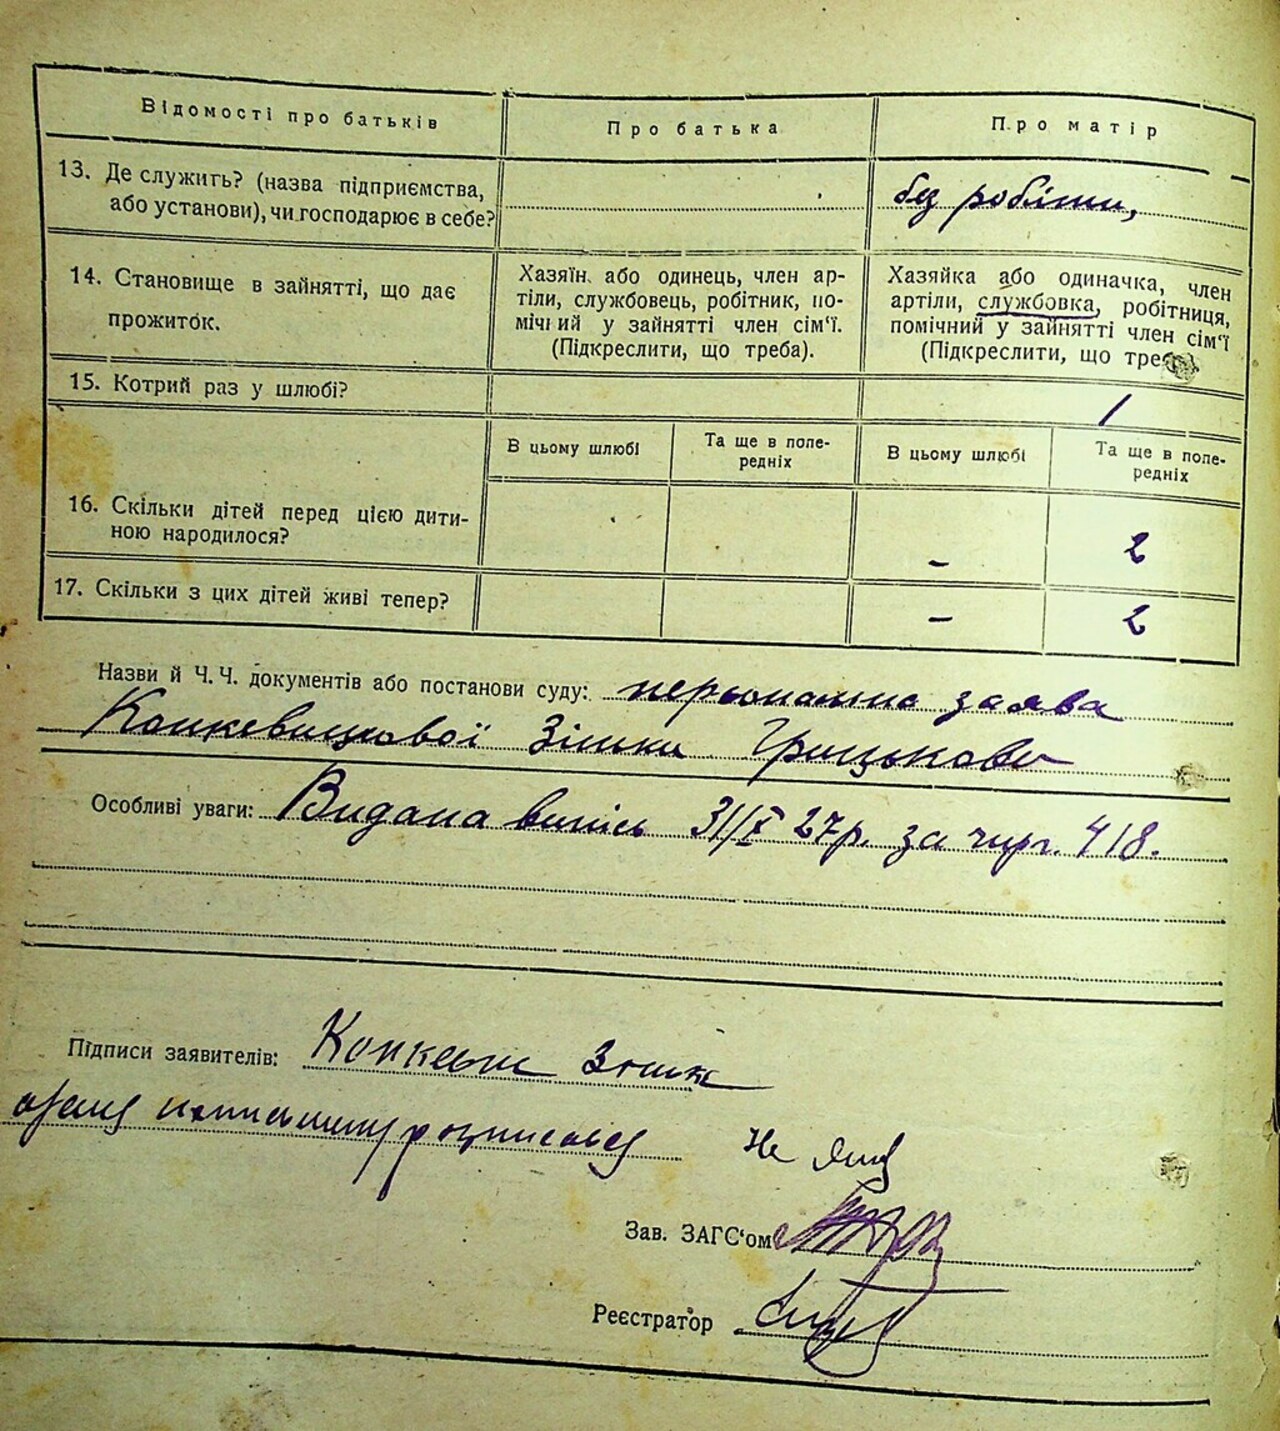 Відомості про батьків
Про батька
Про матір
13. Де служить? (назва підприємства,
або установи), чи господарює в себе?
без роботи,
14. Становище в зайнятті, що дає
прожиток.
Хазяїн або одинець, член ар-
тіли, службовець, робітник, по-
мічний у зайнятті член сім'ї.
(Підкреслити, що треба).
Хазяйка або одиначка, член
артіли, службовка, робітниця,
помічний у зайнятті член сім'ї
(Підкреслити, що треба).
15. Котрий раз у шлюбі?
1
В цьому шлюбі
Та ще в попе-
редніх
В цьому шлюбі
Та ще в попе-
редніх
16. Скільки дітей перед цією дити-
ною народилося?
–
2
17. Скільки з цих дітей живі тепер?
–
2
Назви й Ч. Ч. документів або постанови суду: персональна заява
Зіньки
Особливі уваги: Видана випись 31/ 27р. за 418.
Підписи заявителів:
Не
Зав. ЗАГС'ом
Реєстратор